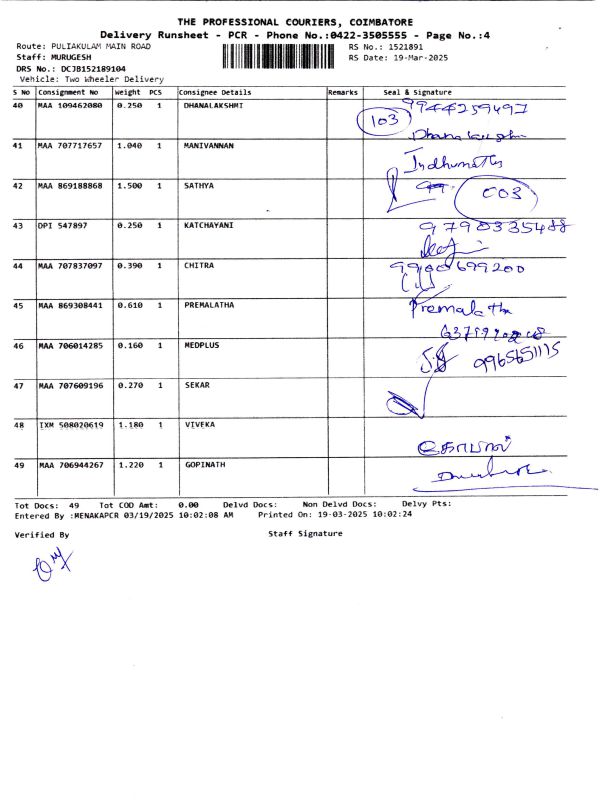 THE PROFESSIONAL COURIERS, COIMBATORE
Delivery Runsheet - PCR - Phone No.:0422-3505555 - Page No.:4
Route: PULIAKULAM MAIN ROAD RS No.: 1521891
Staff: MURUGESH RS Date: 19-Mar-2025
DRS No.: DCJB152189104
Vehicle: Two Wheeler Delivery
S No Consignment No Weight PCS Consignee Details Remarks Seal & Signature
40 MAA 109462080 0.250 1 DHANALAKSHMI 9944259497
103
41 MAA 707717657 1.040 1 MANIVANNAN Indhumathi
42 MAA 869188868 1.500 1 SATHYA C03
43 DPI 547897 0.250 1 KATCHAYANI 9790335488
44 MAA 707837097 0.390 1 CHITRA
45 MAA 869308441 0.610 1 PREMALATHA Premalatha
46 MAA 706014285 0.160 1 MEDPLUS
47 MAA 707609196 0.270 1 SEKAR
48 IXM 508020619 1.180 1 VIVEKA
49 MAA 706944267 1.220 1 GOPINATH
Tot Docs: 49 Tot COD Amt: 0.00 Delvd Docs: Non Delvd Docs: Delvy Pts:
Entered By :MENAKAPCR 03/19/2025 10:02:08 AM Printed On: 19-03-2025 10:02:24
Verified By Staff Signature